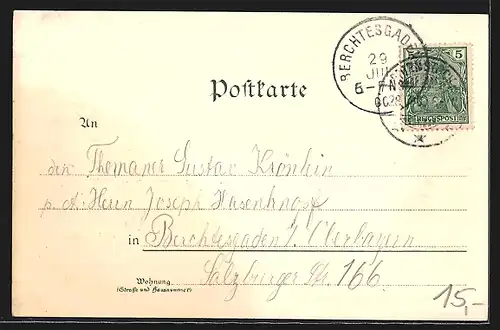 BERCHTESGADEN
29
JUL
6-7N
5
REICHSPOST
Postkarte
An
den Thomaner Gustav Krönlein
p. A. Herrn Joseph Hasenknopf
in Berchtesgaden / Oberbayern
Salzburger Str. 166
Wohnung
(Straße und Hausnummer)
15,-